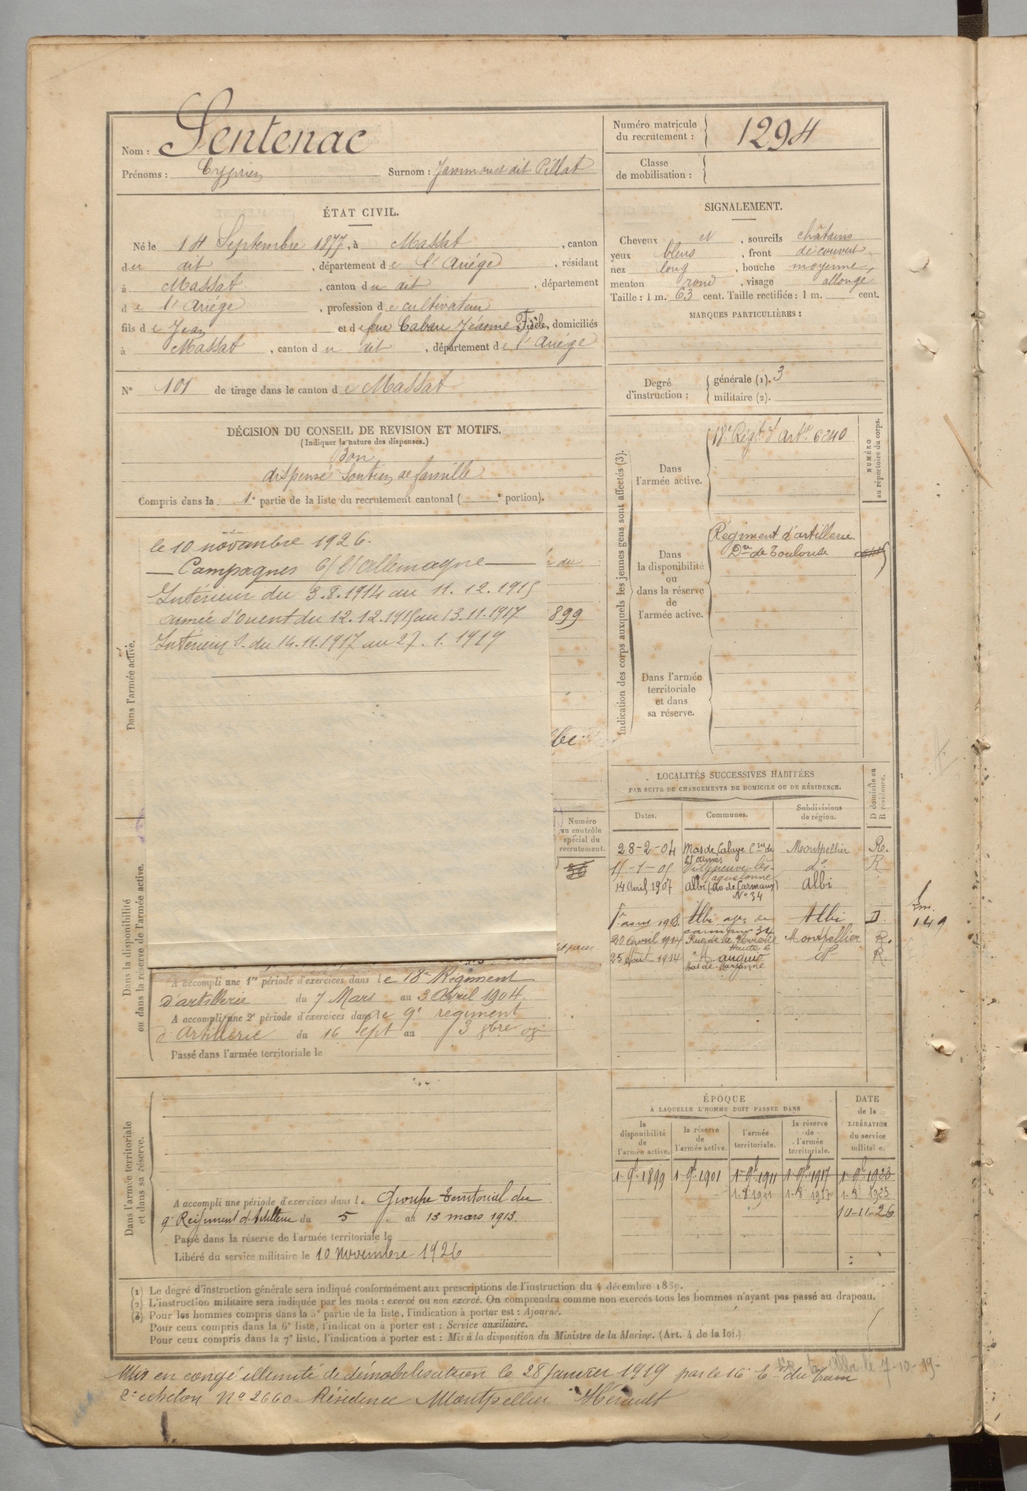 Nom : Sentenac
Prénoms : Cyprien Surnom : dit Pillat
Numéro matricule du recrutement : 1294
Classe de mobilisation :
ÉTAT CIVIL.
Né le 14 Septembre 1877, à Massat, canton
du dit, département de l'Ariége, résidant
à Massat, canton du dit, département
de l'Ariége, profession de cultivateur
fils de Jean et de feue Cabau Jéanne, domiciliés
à Massat, canton du dit, département de l'Ariége
N° 101 de tirage dans le canton de Massat
SIGNALEMENT.
Cheveux et, sourcils châtains
yeux bleus, front découvert
nez long, bouche moyenne,
menton rond, visage allongé
Taille : 1 m. 63 cent. Taille rectifiée : 1 m. cent.
MARQUES PARTICULIÈRES :
Degré d'instruction : générale (1). 3
militaire (2).
DÉCISION DU CONSEIL DE REVISION ET MOTIFS.
(Indiquer la nature des dispenses.)
Bon
dispensé Soutien de famille
Compris dans la 1e partie de la liste du recrutement cantonal ( e portion).
Dans l'armée active.
le 10 novembre 1926.
Campagnes c/ l'Allemagne
Intérieur du 3.8.1914 au 11.12.1915
armée d'Orient du 12.12.1915 au 13.11.1917
Intérieur du 14.11.1917 au 27.1.1919
899
Indication des corps auxquels les jeunes gens sont affectés (3).
NUMÉRO au répertoire du corps.
Dans l'armée active.
18e Régt d'artie 6240
Dans la disponibilité ou dans la réserve de l'armée active.
Régiment d'artillerie
Don de Toulouse
Dans l'armée territoriale et dans sa réserve.
LOCALITÉS SUCCESSIVES HABITÉES
PAR SUITE DE CHANGEMENTS DE DOMICILE OU DE RÉSIDENCE.
D domicile ou R résidence.
Dates. Communes. Subdivisions de région.
28-2-04 Mas de Calage Montpellier R.
15-1-05 Villeneuve-les- do R
14 Avril 1907 Albi (Av de Carmaux) No 34 Albi
1er 1908 Albi 34 Albi D.
20 avril 1914 Montpellier R.
25 Août 1914 R.
149
Numéro au contrôle spécial du recrutement.
Dans la disponibilité ou dans la réserve de l'armée active.
A accompli une 1re période d'exercices dans le 18e Régiment
d'artillerie du 7 Mars au 3 Avril 1904.
A accompli une 2e période d'exercices dans le 9e régiment
d'Artillerie du 16 Sept au 13 8bre
Passé dans l'armée territoriale le
Dans l'armée territoriale et dans sa réserve.
A accompli une période d'exercices dans le Groupe Territorial du
9e Régiment d'Artillerie du 5 au 13 mars 1913.
Passé dans la réserve de l'armée territoriale le
Libéré du service militaire le 10 Novembre 1926
ÉPOQUE
À LAQUELLE L'HOMME DOIT PASSER DANS
DATE de la LIBÉRATION du service militaire.
la disponibilité de l'armée active. la réserve de l'armée active. l'armée territoriale. la réserve de l'armée territoriale.
1-9-1899 1-9-1901 1-9-1911 1-9-1917 1-9-1923
10-11-26
(1) Le degré d'instruction générale sera indiqué conformément aux prescriptions de l'instruction du 4 décembre 1889.
(2) L'instruction militaire sera indiquée par les mots : exercé ou non exercé. On comprendra comme non exercés tous les hommes n'ayant pas passé au drapeau.
(3) Pour les hommes compris dans la 5e partie de la liste, l'indication à porter est : Ajourné.
Pour ceux compris dans la 6e liste, l'indication à porter est : Service auxiliaire.
Pour ceux compris dans la 7e liste, l'indication à porter est : Mis à la disposition du Ministre de la Marine. (Art. 4 de la loi.)
Mis en congé illimité de démobilisation le 28 Janvier 1919 par le 16e Eon du Train
2e échelon No 2660 Résidence Montpellier Hérault